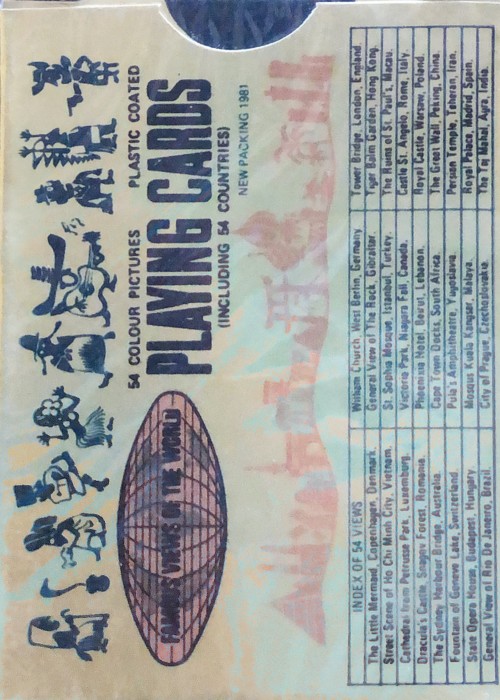 54 COLOUR PICTURES PLASTIC COATED
PLAYING CARDS
(INCLUDING 54 COUNTRIES)
NEW PACKING 1981
FAMOUS VIEWS OF THE WORLD
INDEX OF 54 VIEWS
The Little Mermaid, Copenhagen, Denmark.
Street Scene of Ho Chi Minh City, Vietnam.
Cathedral from Perrusse Park, Luxemburg.
Dracula's Castle, Snagov Forest, Romania.
The Sydney Harbour Bridge, Australia.
Fountain of Geneve Lake, Switzerland.
State Opera House, Budapest, Hungary
General View of Rio De Janeiro, Brazil.
William Church, West Berlin, Germany
General View of The Rock, Gibraltar.
St. Sophia Mosque, Istanbul, Turkey.
Victoria Park, Niagara Fall, Canada.
Phoenicia Hotel, Beirut, Lebanon.
Cape Town Docks, South Africa.
Pula's Amphitheatre, Yugoslavia.
Mosque Kuala Kangsar, Malaya.
City of Prague, Czechoslovakia.
Tower Bridge, London, England.
Tiger Balm Garden, Hong Kong.
The Ruins of St. Paul's, Macau.
Castle St. Angelo, Rome, Italy.
Royal Castle, Warsaw, Poland.
The Great Wall, Peking, China.
Persian Temple, Teheran, Iran.
Royal Palace, Madrid, Spain.
The Taj Mahal, Agra, India.